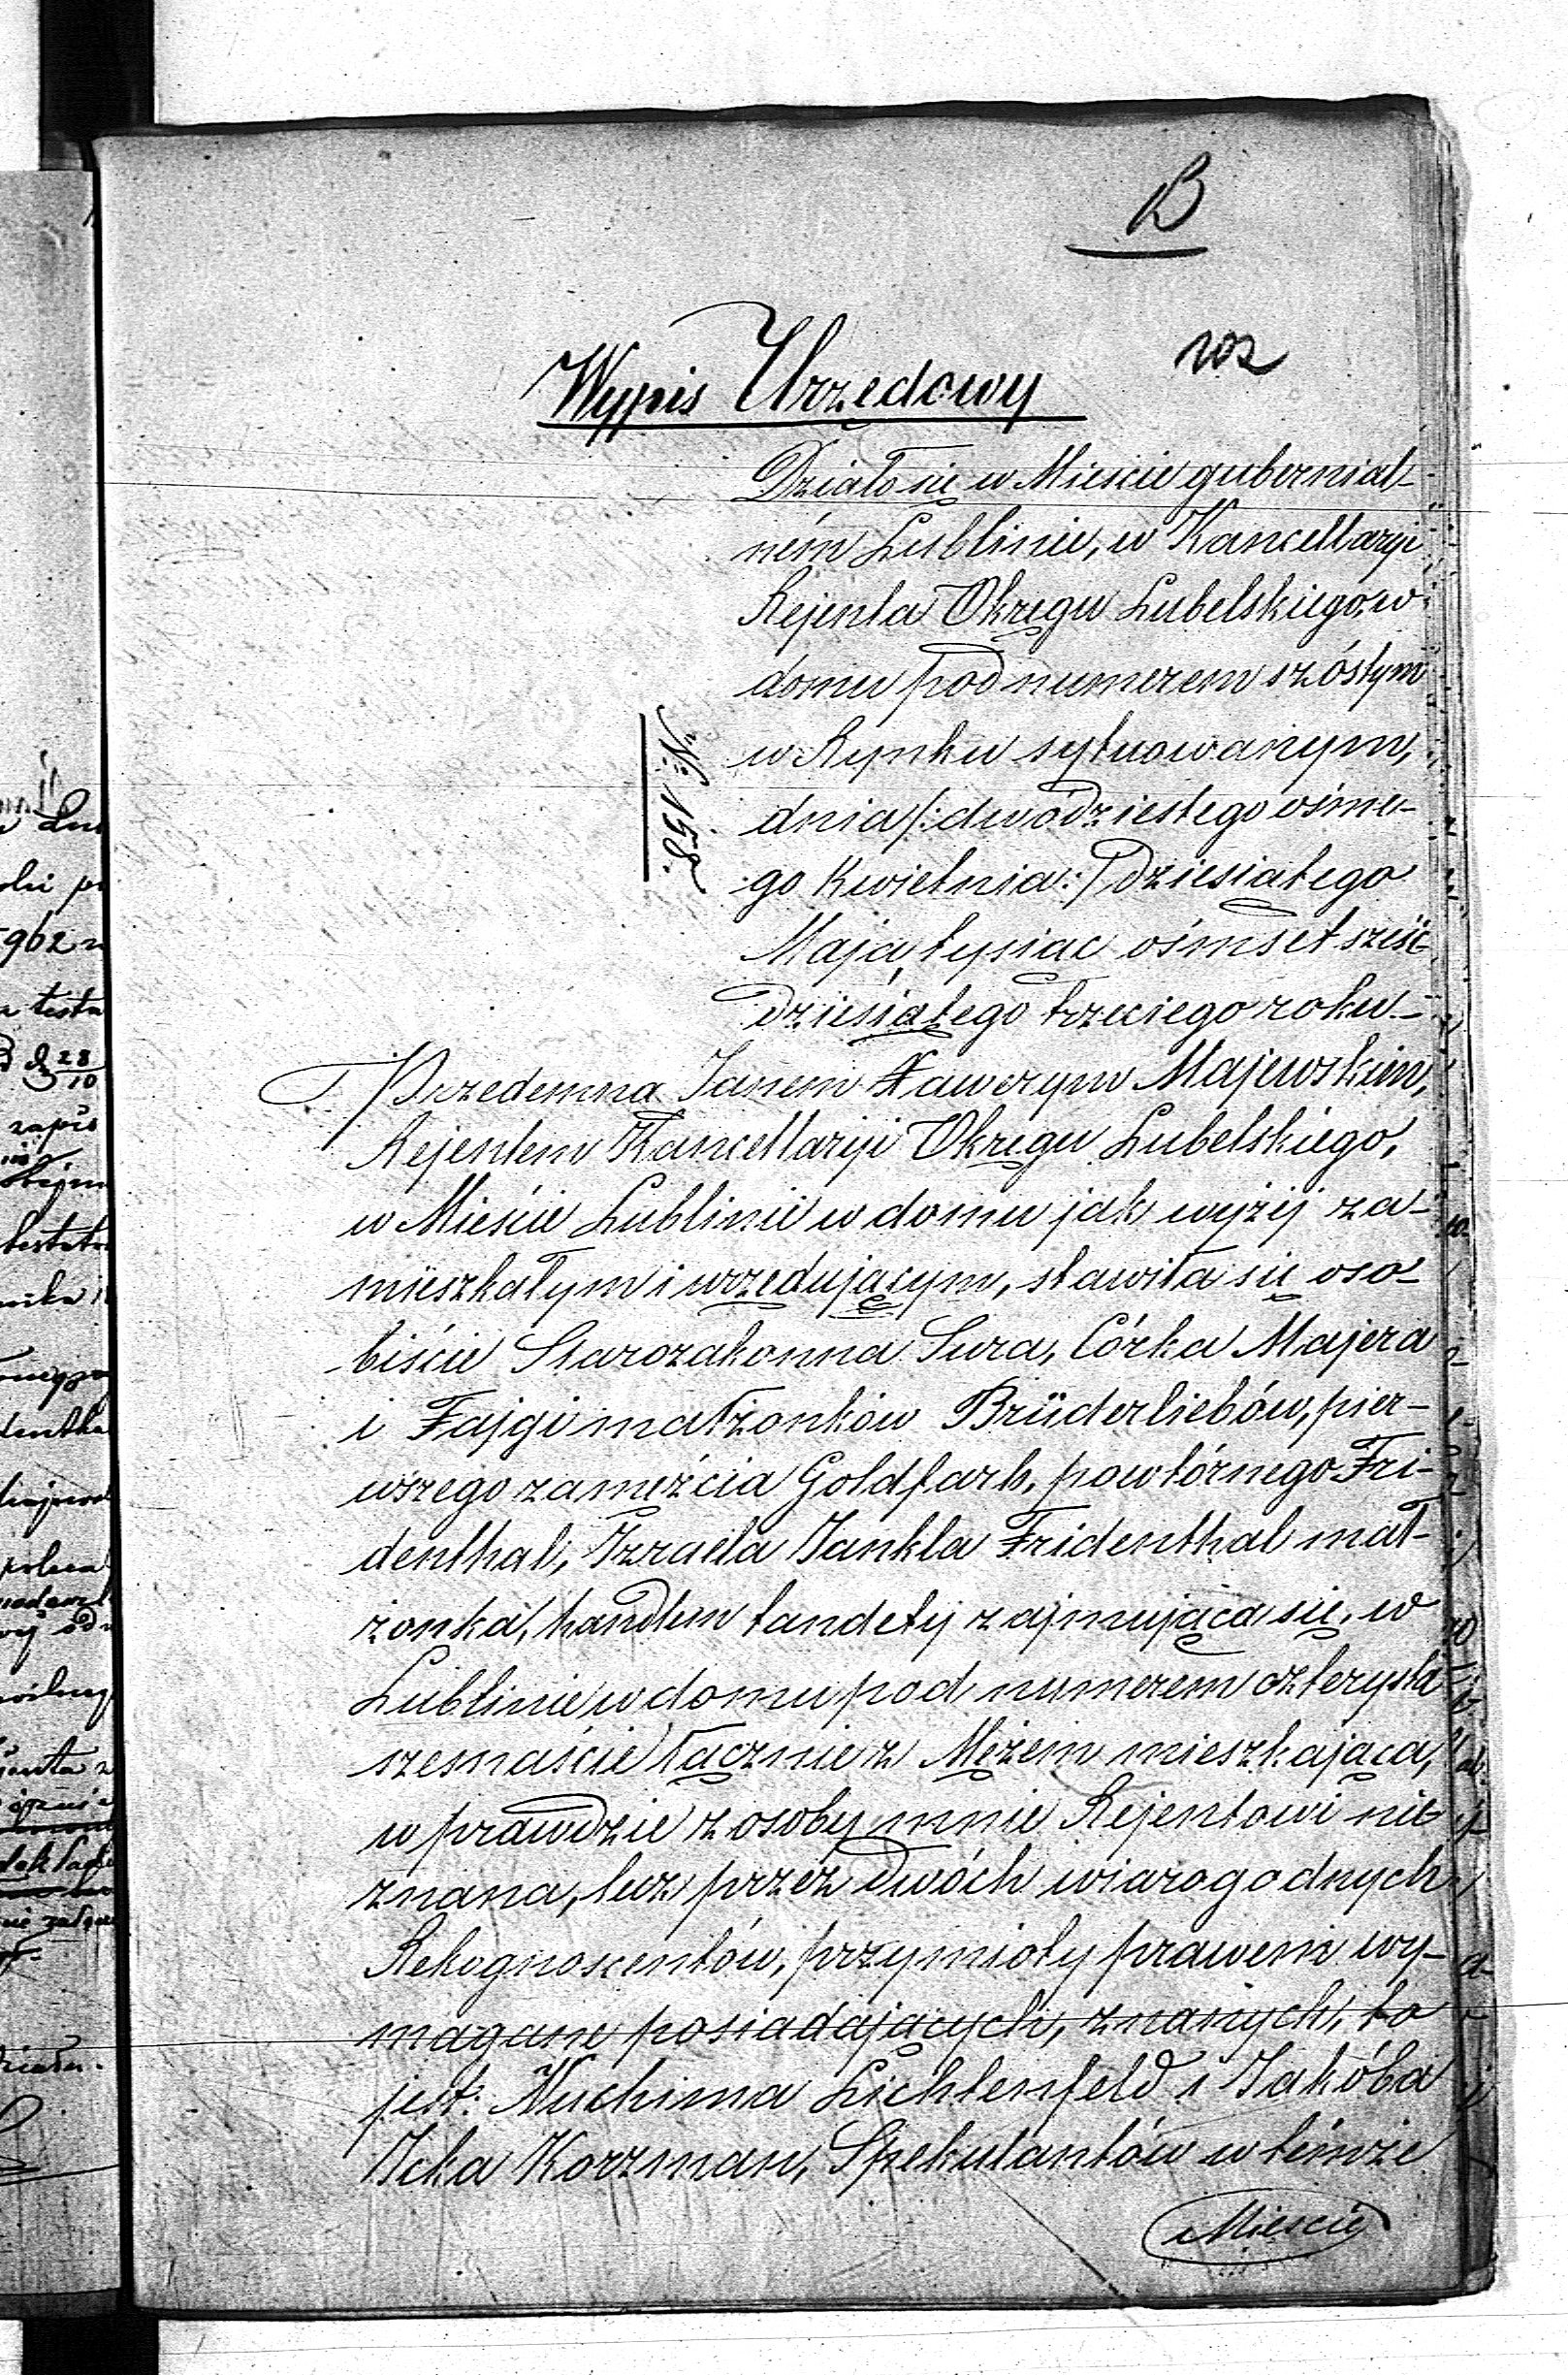 B
102
Wypis Urzędowy
Działo się w Mieście gubernial-
ném Lublinie, w Kancellaryi
Rejenta Okręgu Lubelskiego, w
domu pod numerem szóstym
w Rynku sytuowanym,
No 158.
dnia /: dwódziestego ósme-
go Kwietnia :/ dziesiątego
Maja, tysiąc ośmset sześć-
dziesiątego trzeciego roku.-
Przedemną Janem Xawerym Majewskim,
Rejentem Kancellaryi Okręgu Lubelskiego,
w Mieście Lublinie w domu jak wyżéj za-
mieszkałym i urzędującym, stawiła się oso-
biście Starozakonna Sura, Córka Majera
i Fajgi małżonków Brüderliebów, pier-
wszego zamęźcia Goldfarb, powtórnego Fri-
denthal, Izraela Jankla Fridenthal mał-
żonka, handlem tandety zajmująca się, w
Lublinie w domu pod numerem czterysta
szesnaście łącznie z Mężem mieszkająca,
w prawdzie z osoby mnie Rejentowi nie
znana, lecz przez dwóch wiarogodnych
Rekognoscentów, przymioty prawem wy-
magane posiadających, znanych, to
jest: Nuchima Lichtenfeld i Jakóba
Icka Korzman, Spekulantów w témże
Mieście